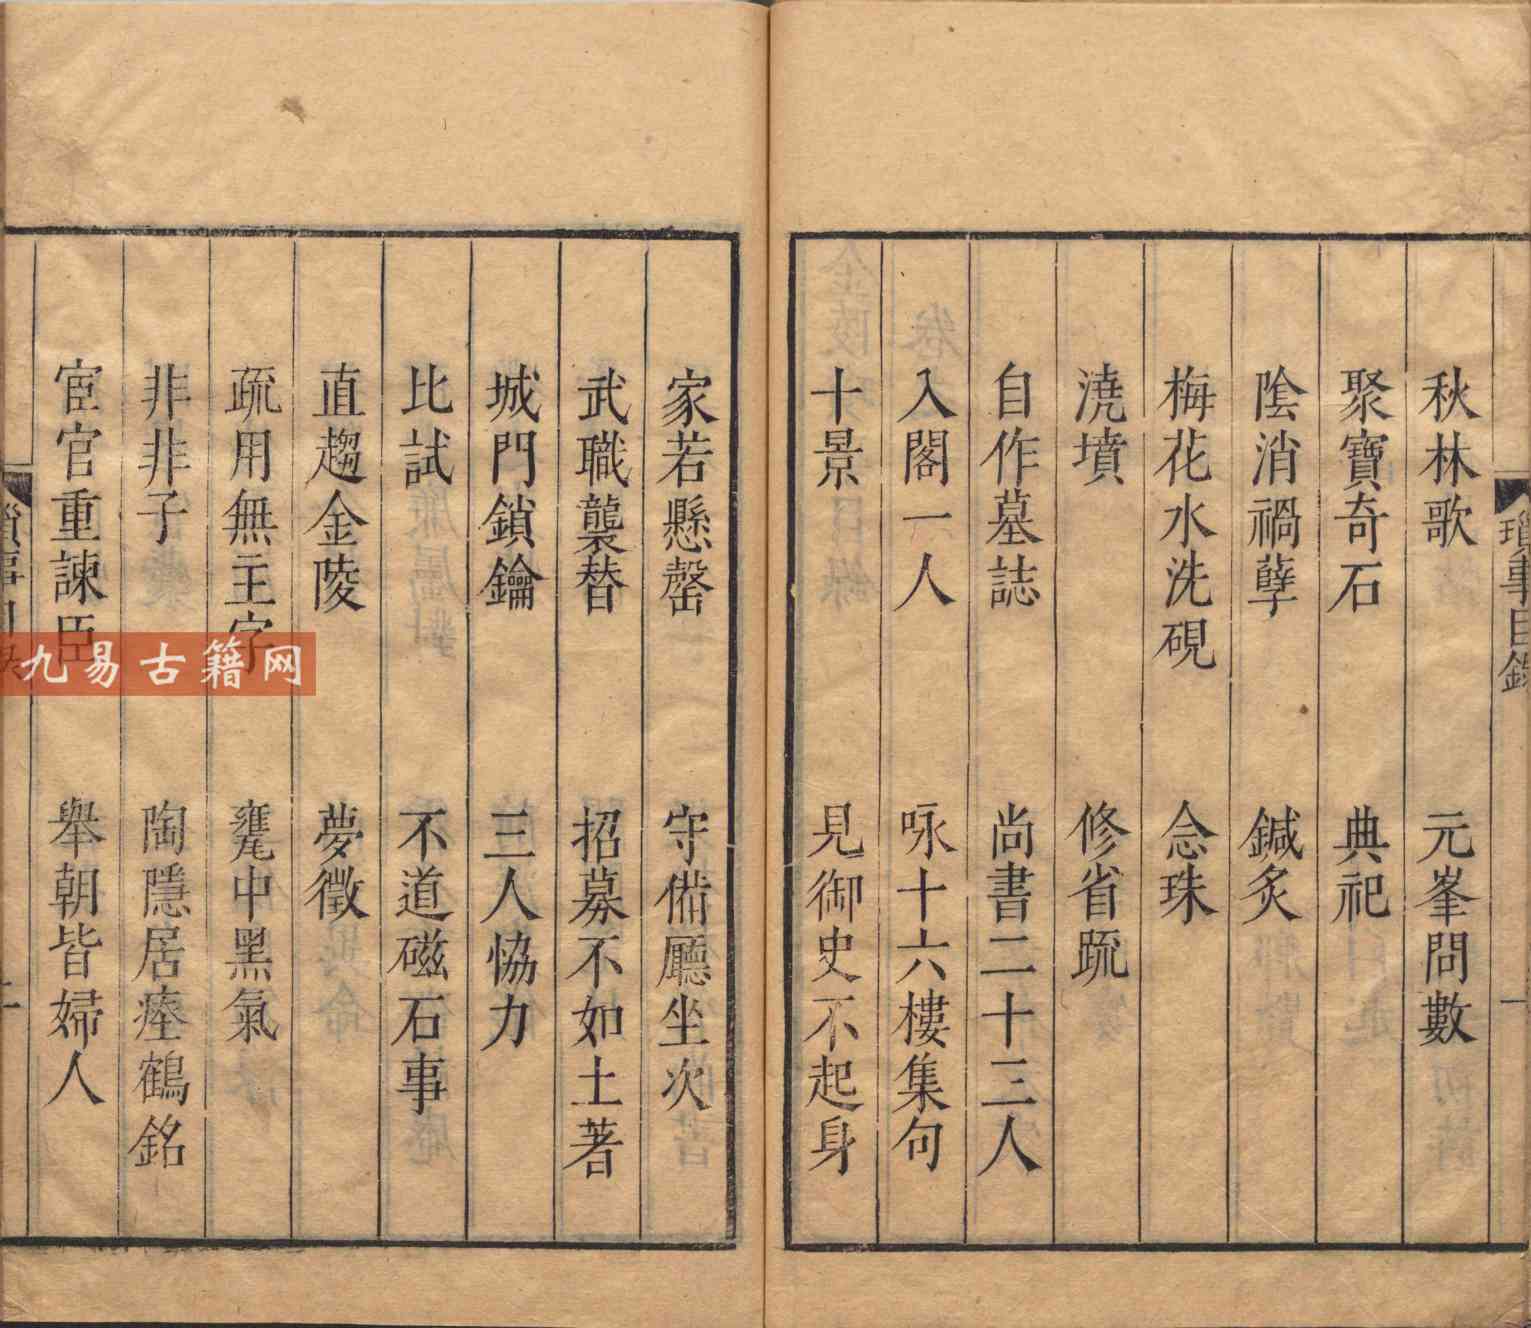 瑣事目錄
一
秋林歌 元峯問數
聚寶奇石 典祀
陰消禍孽 鍼炙
梅花水洗硯 念珠
澆墳 修省疏
自作墓誌 尚書二十三人
入閣一人 咏十六樓集句
十景 見御史不起身
家若懸罄 守備廳坐次
武職襲替 招募不如土著
城門鎖鑰 三人恊力
比試 不道磁石事
直趨金陵 夢徵
疏用無主字 甕中黑氣
非非子 陶隱居瘞鶴銘
宦官重諫臣 舉朝皆婦人
九易古籍网